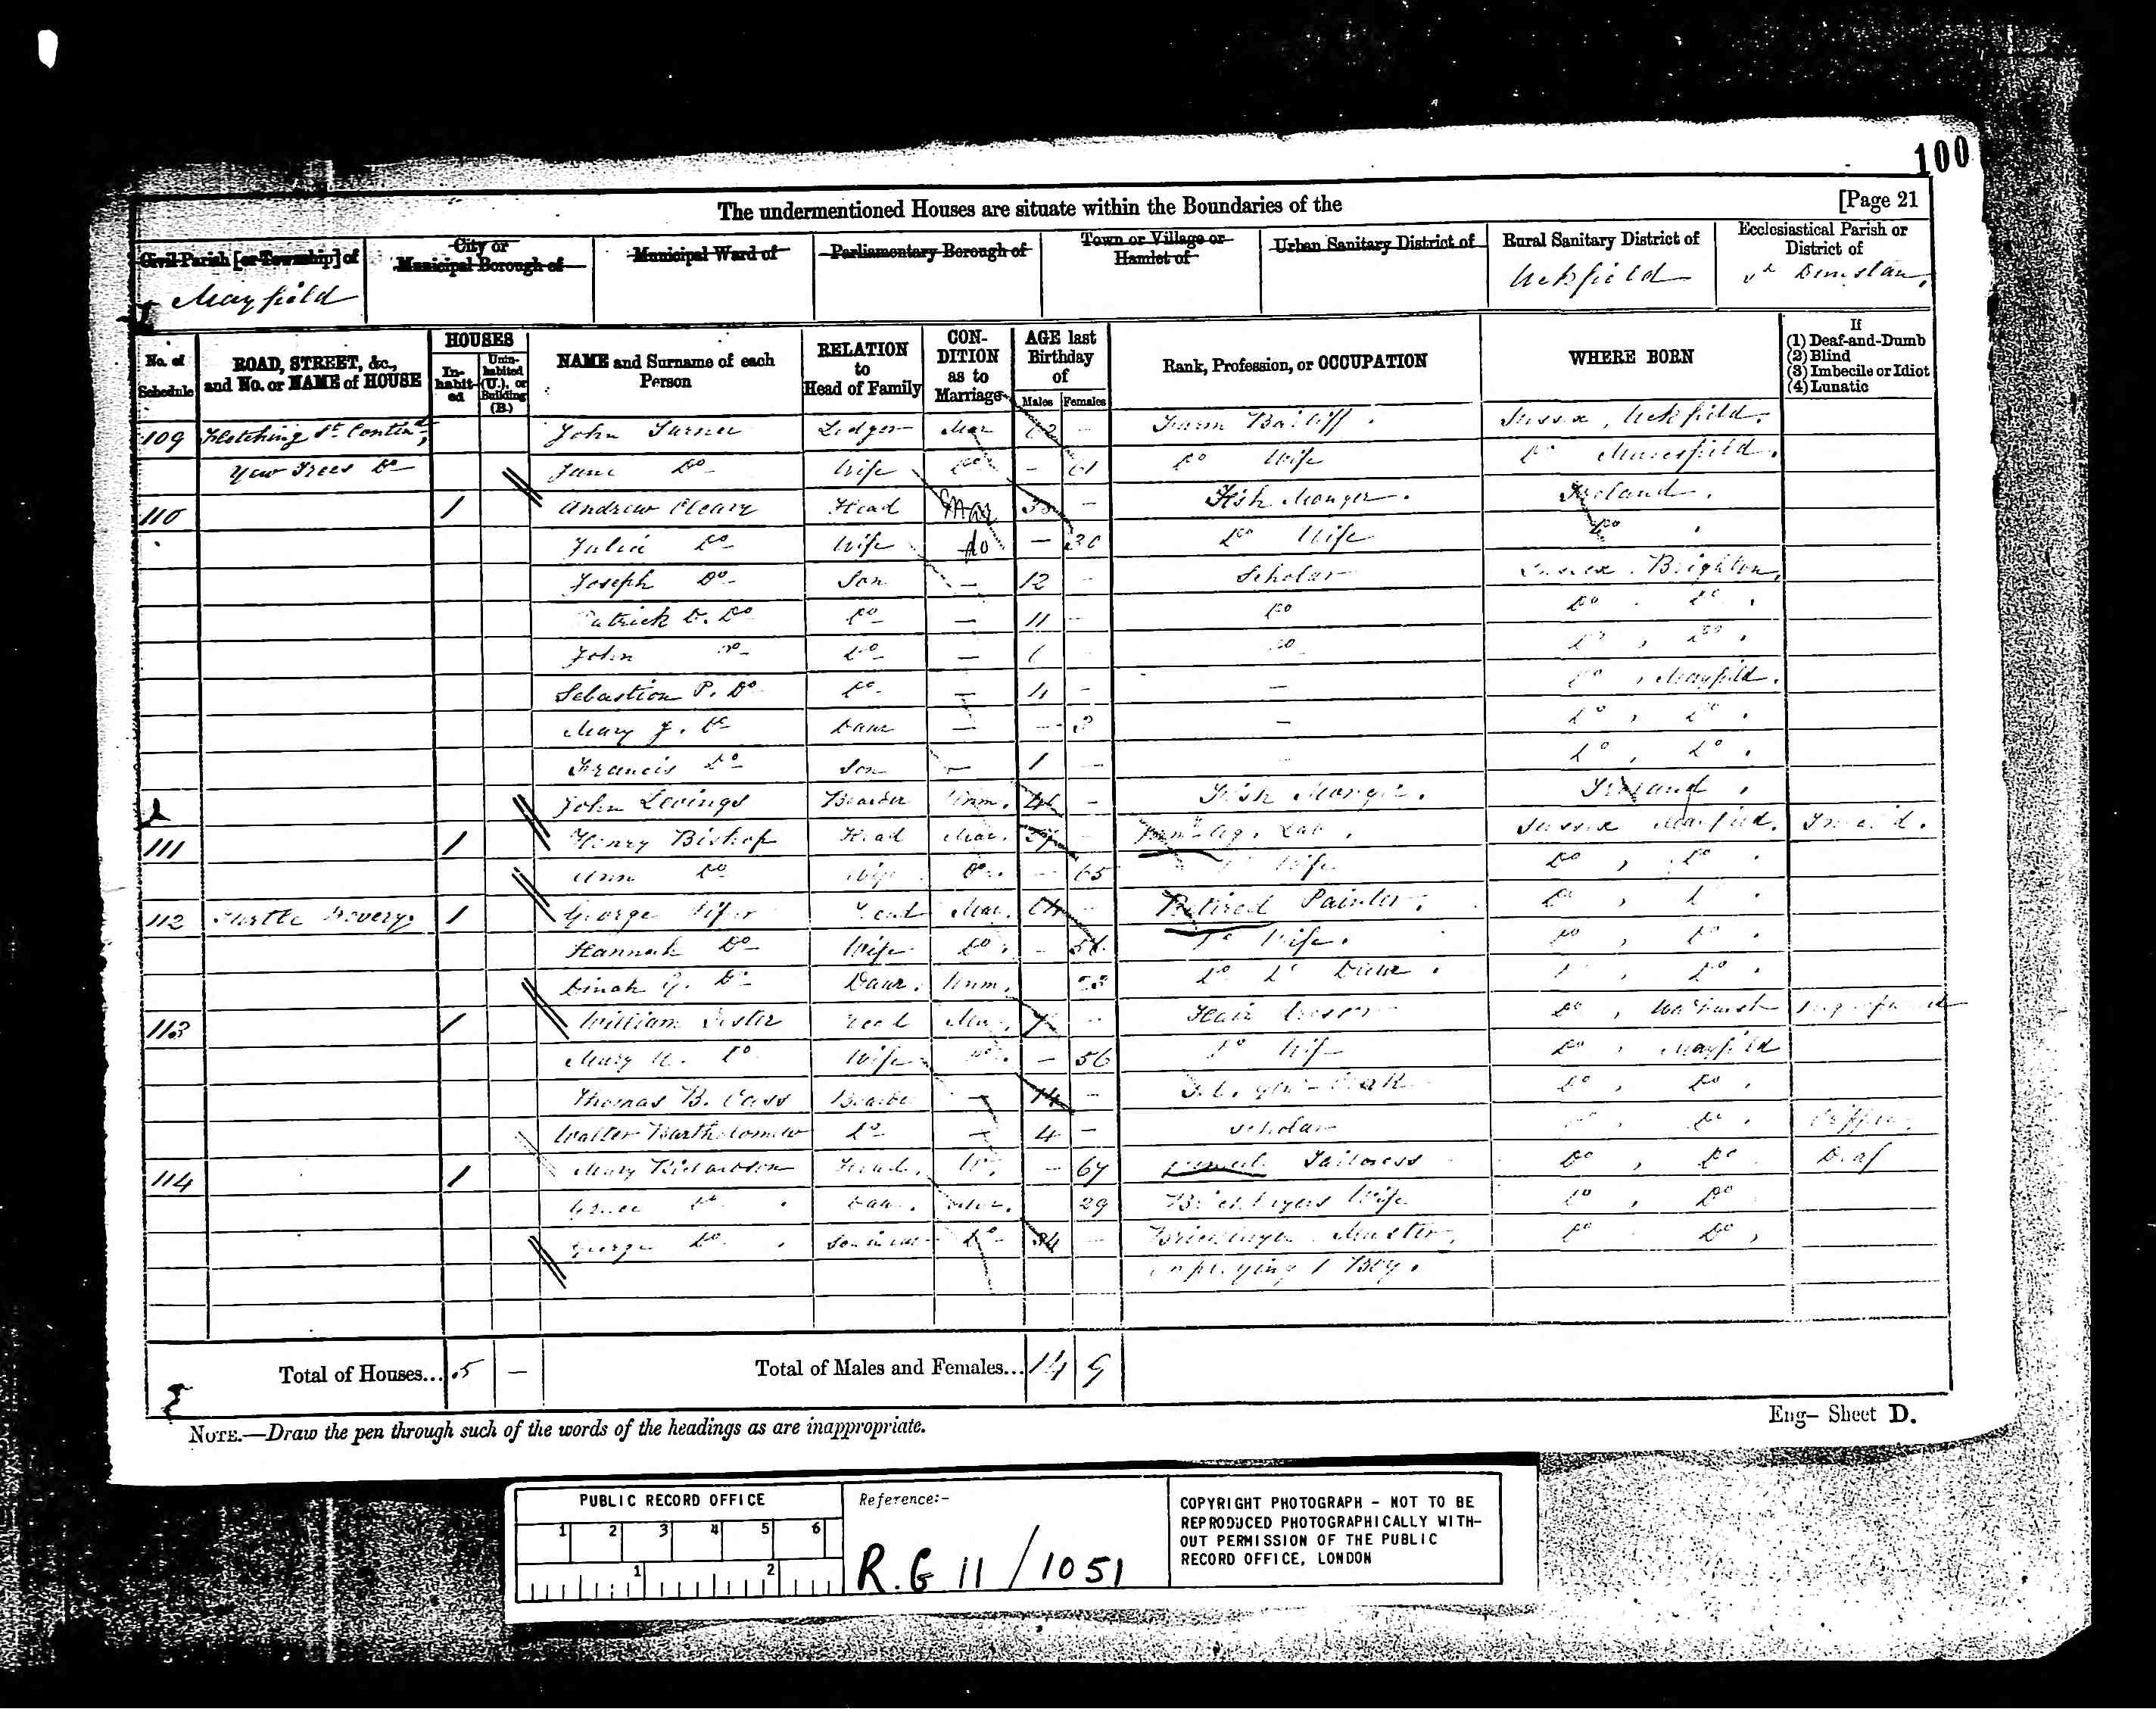 100
The undermentioned Houses are situate within the Boundaries of the [Page 21
Civil Parish [or Township] of
Mayfield
City or Municipal Borough of
Municipal Ward of
Parliamentary Borough of
Town or Village or Hamlet of
Urban Sanitary District of
Rural Sanitary District of
Uckfield
Ecclesiastical Parish or District of
St Dunstan,
No. of Schedule
ROAD, STREET, &c., and No. or NAME of HOUSE
HOUSES
Inhabited
Uninhabited (U.), or Building (B.)
NAME and Surname of each Person
RELATION to Head of Family
CONDITION as to Marriage
AGE last Birthday of
Males
Females
Rank, Profession, or OCCUPATION
WHERE BORN
If
(1) Deaf-and-Dumb
(2) Blind
(3) Imbecile or Idiot
(4) Lunatic
109 Fletching St Contind, John Turner Lodger Mar - Farm Bailiff. Sussex, Uckfield.
Yew Trees Do Jane Do Wife Do - 61 Do Wife Do Maresfield.
110 1 Andrew Cleary Head Mar - Fish Monger. Ireland.
Julia Do Wife do - Do Wife Do.
Joseph Do Son - 12 - Scholar Sussex. Brighton,
Patrick Do Do - 11 - Do Do. Do.
John Do Do - - Do Do, Do.
Sebastian P. Do Do - 4 - - Do, Mayfield.
Mary J. Do Daur - - 3 - Do, Do.
Francis Do Son - 1 - - Do, Do.
John Levings Boarder Unm. - Fish Monger. Ireland.
111 1 Henry Bishop Head Mar. - Ag. Lab. Sussex Mayfield.
Ann Do Wife Do. - 65 Wife Do, Do.
112 Turtle 1 George Head Mar. - Retired Painter. Do,
Hannah Do Wife Do. - Do Wife. Do, Do.
Dinah Do Daur. Unm. Do Do Daur. Do, Do.
113 1 William Head Mar. - Hair Do,
Mary Do Wife Do. - 56 Do Wife Do, Mayfield
Thomas B. Cass Boarder - 14 - Do, Do.
Walter Bartholomew Do - 4 - Scholar Do.
114 1 Mary Richardson Head. W. - 67 Tailoress Do, Do Deaf
Grace Do. Daur. Mar. 29 Bricklayers Wife Do, Do
George Do. Son in law Do 34 - Bricklayer Master, Do Do,
employing 1 Boy.
Total of Houses... 5 -
Total of Males and Females... 14 9
NOTE.—Draw the pen through such of the words of the headings as are inappropriate.
Eng- Sheet D.
PUBLIC RECORD OFFICE
1 2 3 4 5 6
1 2
Reference:-
R.G 11 / 1051
COPYRIGHT PHOTOGRAPH - NOT TO BE
REPRODUCED PHOTOGRAPHICALLY WITH-
OUT PERMISSION OF THE PUBLIC
RECORD OFFICE, LONDON